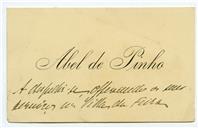 Abel de Pinho
A despedir-se, offerecendo os seus
serviços na Villa da Feira